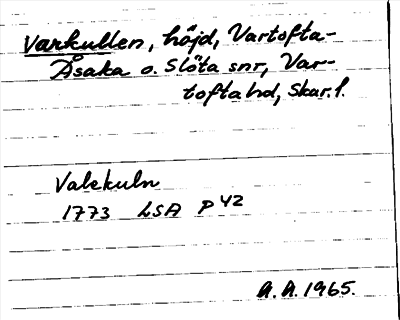 Varkullen, höjd, Vartofta-
Åsaka o. Slöta snr, Var-
tofta hd, Skar. l.
Valekuln
1773 LSA P 42
A. A. 1965.